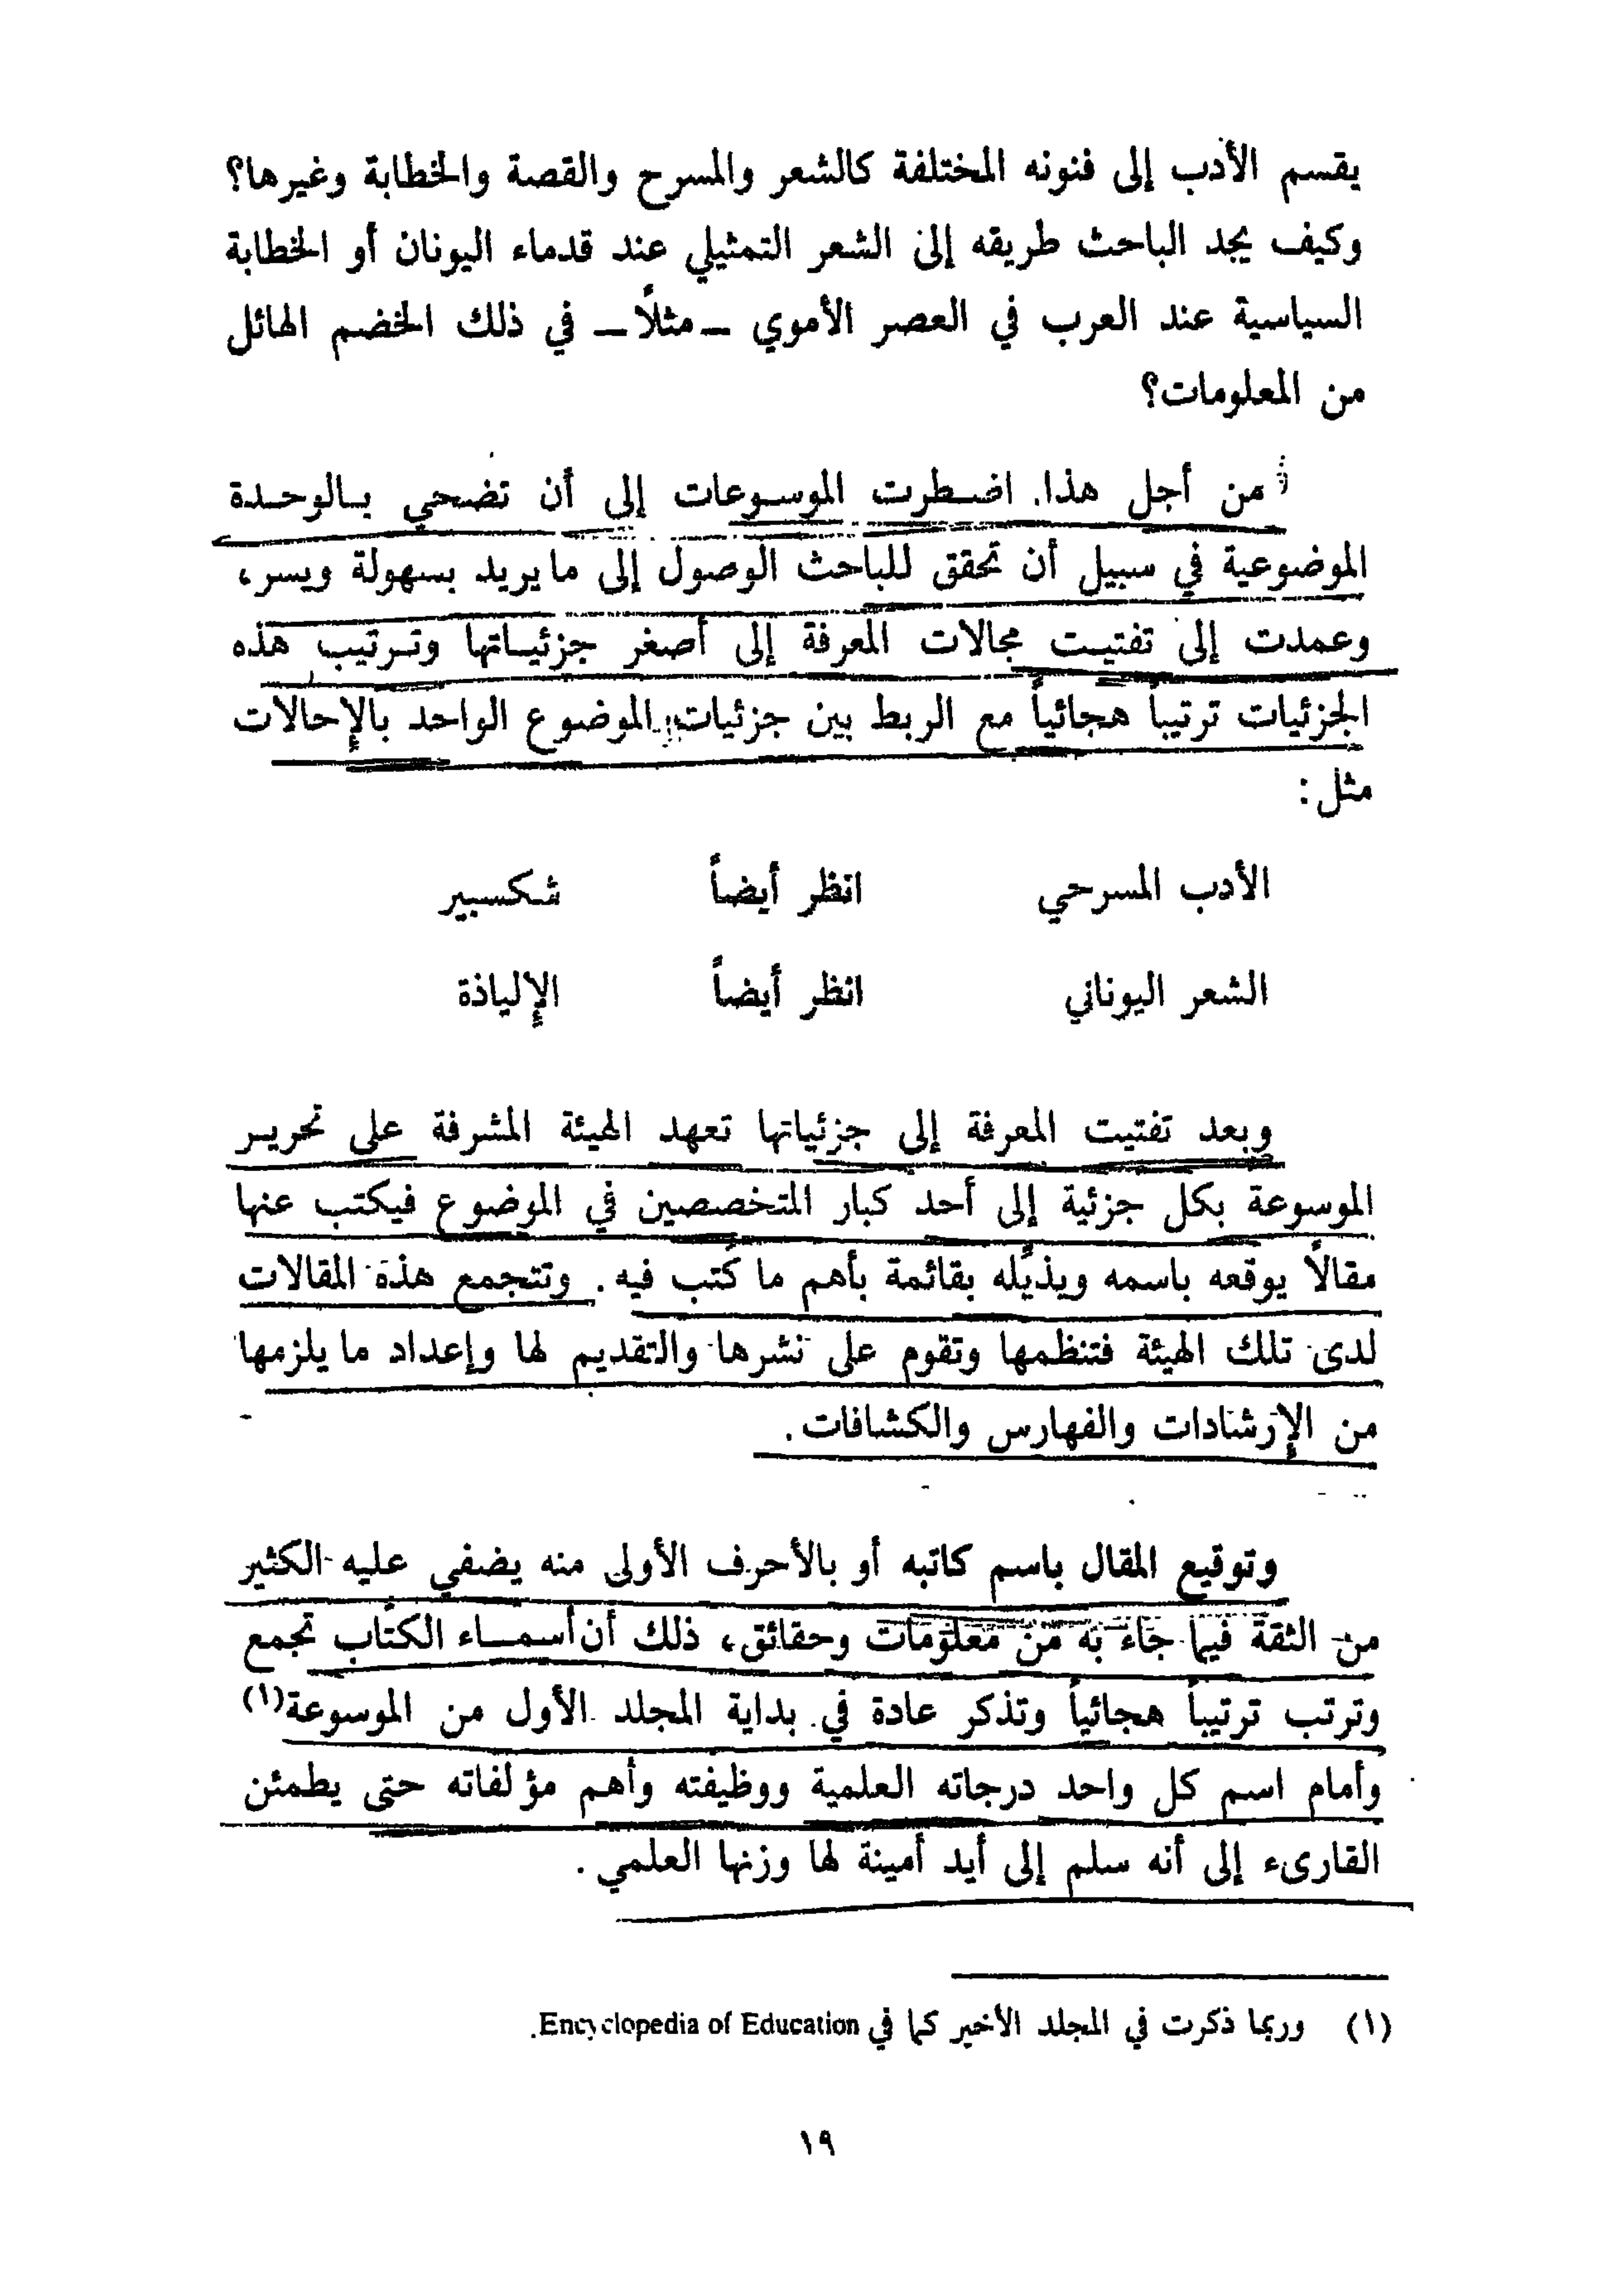 يقسم الأدب إلى فنونه المختلفة كالشعر والمسرح والقصة والخطابة وغيرها؟
وكيف يجد الباحث طريقه إلى الشعر التمثيلي عند قدماء اليونان أو الخطابة
السياسية عند العرب في العصر الأموي ــ مثلًا ــ في ذلك الخضم الهائل
من المعلومات؟
من أجل هذا. اضطرت الموسوعات إلى أن تضحي بالوحدة
الموضوعية في سبيل أن تحقق للباحث الوصول إلى ما يريد بسهولة ويسر،
وعمدت إلى تفتيت مجالات المعرفة إلى أصغر جزئياتها وترتيب هذه
الجزئيات ترتيباً هجائياً مع الربط بين جزئيات الموضوع الواحد بالإحالات
مثل:
الأدب المسرحي انظر أيضاً شكسبير
الشعر اليوناني انظر أيضاً الإلياذة
وبعد تفتيت المعرفة إلى جزئياتها تعهد الهيئة المشرفة على تحرير
الموسوعة بكل جزئية إلى أحد كبار المتخصصين في الموضوع فيكتب عنها
مقالًا يوقعه باسمه ويذيّله بقائمة بأهم ما كُتب فيه. وتتجمع هذه المقالات
لدى تلك الهيئة فتنظمها وتقوم على نشرها والتقديم لها وإعداد ما يلزمها
من الإرشادات والفهارس والكشافات.
وتوقيع المقال باسم كاتبه أو بالأحرف الأولى منه يضفي عليه الكثير
من الثقة فيما جاء به من معلومات وحقائق، ذلك أن أسماء الكتّاب تجمع
وترتب ترتيباً هجائياً وتذكر عادة في بداية المجلد الأول من الموسوعة(١)
وأمام اسم كل واحد درجاته العلمية ووظيفته وأهم مؤلفاته حتى يطمئن
القارىء إلى أنه سلم إلى أيد أمينة لها وزنها العلمي.
(١) وربما ذكرت في المجلد الأخير كما في Encyclopedia of Education.
١٩